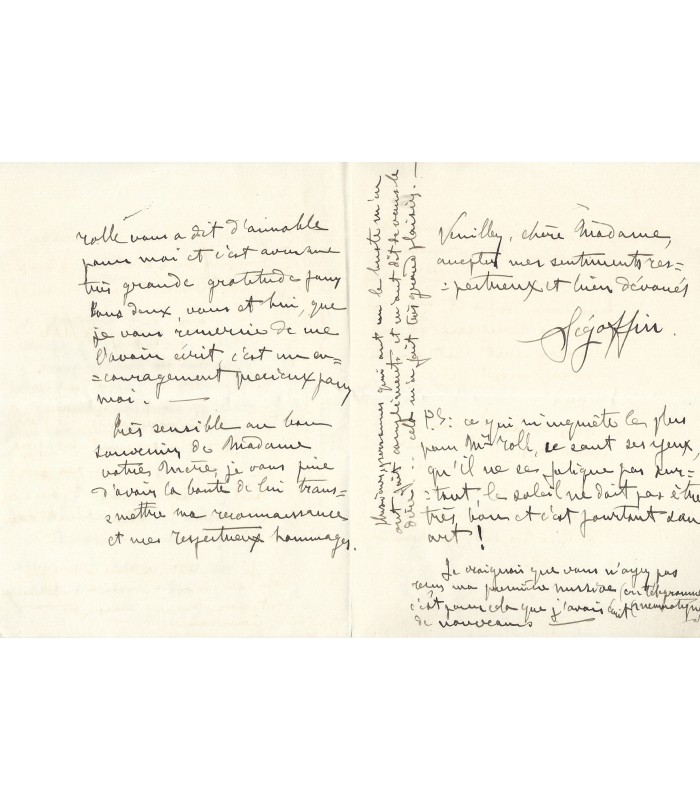 rolle vous a dit d'aimable
pour moi et c'est avec une
très grande gratitude pour
tous deux, vous et lui, que
je vous remercie de me
l'avoir écrit, c'est un en=
=couragement précieux pour
moi. —
Très sensible au bon
souvenir de Madame
votre Mère, je vous prie
d'avoir la bonté de lui trans=
=mettre ma reconnaissance
et mes respectueux hommages.
plusieurs personnes qui ont vu le buste m'en
ont fait compliments et m'ont dit de vous le
dire, cela m'a fait très grand plaisir. —
Veuillez, chère Madame,
accepter mes sentiments res=
=pectueux et bien dévoués
Ségoffin.
P.S: ce qui m'inquiète le plus
pour Mr Roll, ce sont ses yeux,
qu'il ne se fatigue pas sur=
=tout, le soleil ne doit pas être
très bon et c'est pourtant son
art!
Je craignais que vous n'ayez pas
reçu ma première missive (en télégramme
c'est pour cela que j'avais écrit (pneumatique
de nouveau —